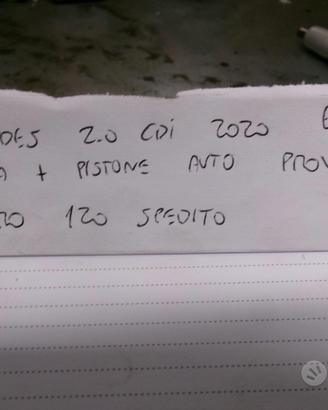 DES 2.0 CDi 2020
+ PISTONE AUTO PROV
120 SPEDITO